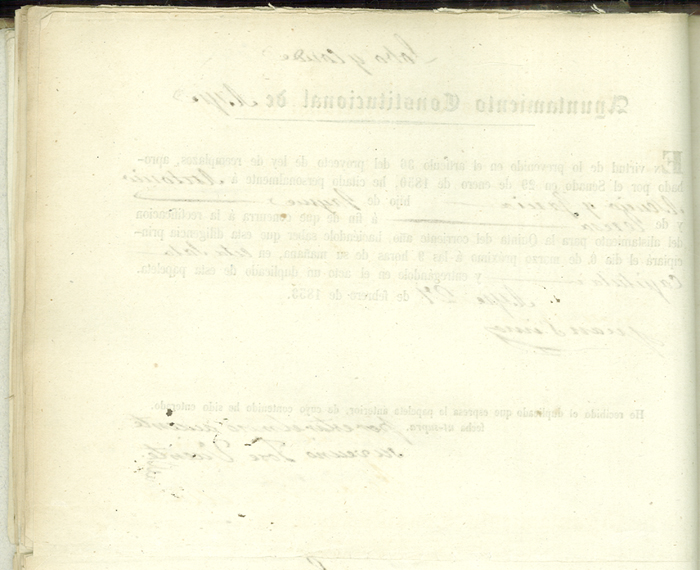 Ayuntamiento Constitucional de Aspe
En virtud de lo prevenido en el artículo 36 del proyecto de ley de reemplazos, apro-
bado por el Senado en 29 de enero de 1850, he citado personalmente á Antonio
y Garcia hijo de Jayme
y de Teresa á fin de que concurra á la rectificacion
del alistamiento para la Quinta del corriente año, haciéndole saber que esta diligencia prin-
cipiará el dia 6 de marzo próximo á las 9 horas de su mañana, en esta Sala
Capitular y entregándole en el acto un duplicado de esta papeleta.
Aspe 27 de febrero de 1853.
Juan
He recibido el duplicado que espresa la papeleta anterior, de cuyo contenido he sido enterado.
fecha ut-supra. por estar el mozo ausente
su vecino José Vicente